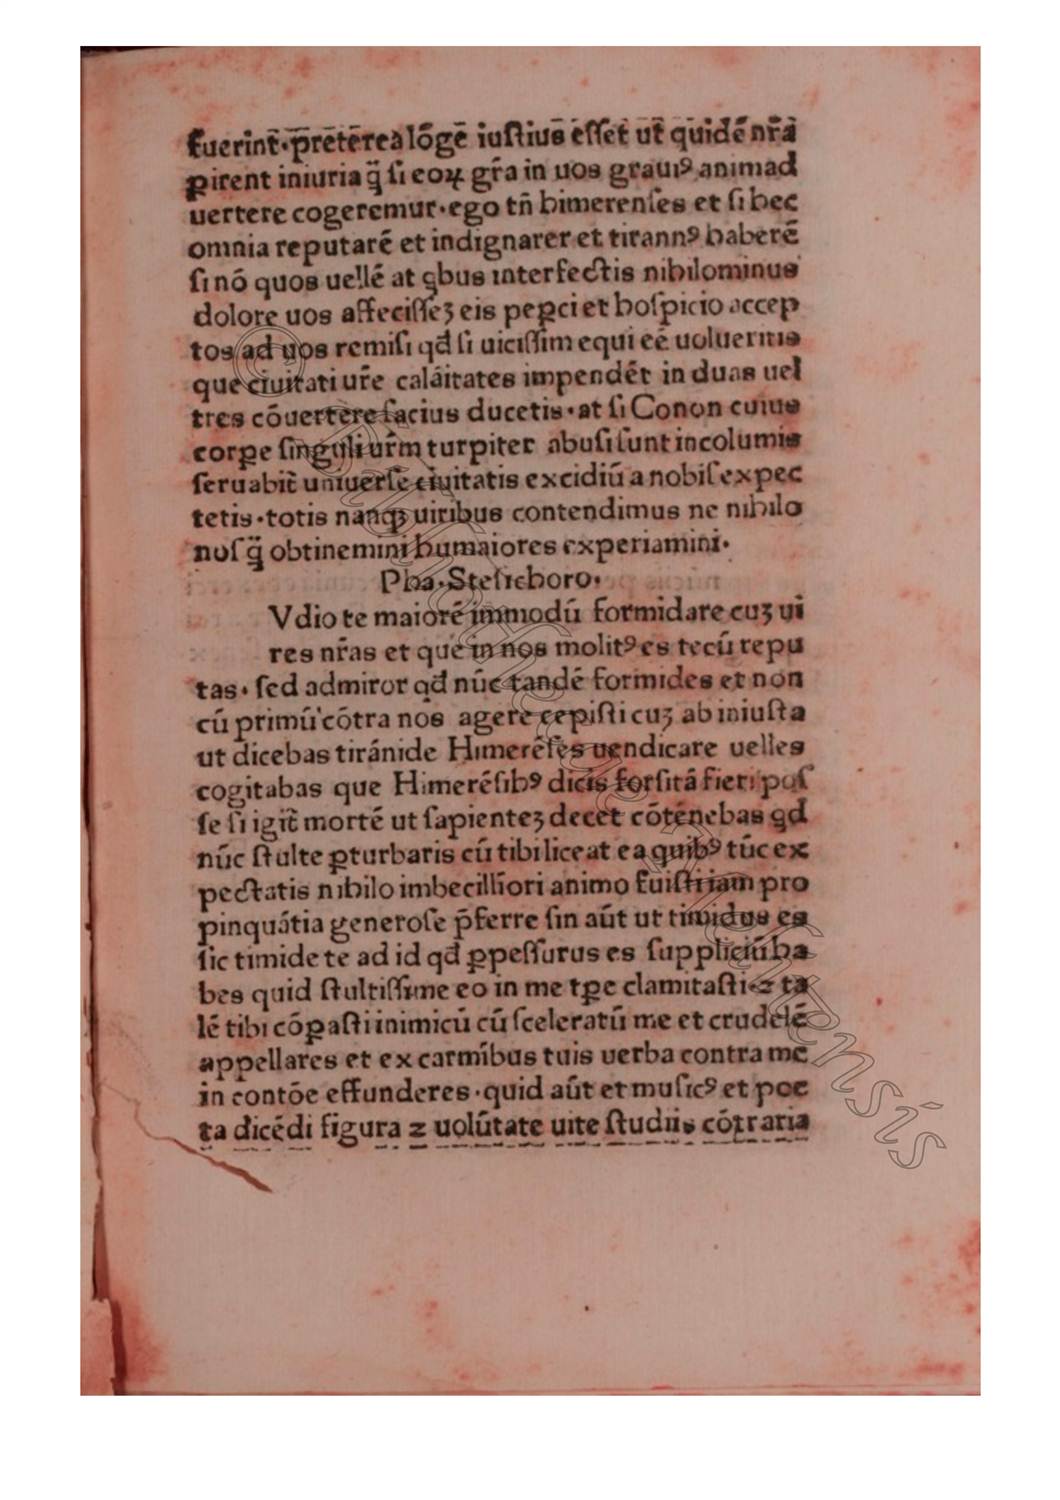 fuerint̄·pret̄erea lōgē iustius ēsset ut̄ quidē nr̄a
ꝑirent iniuria q̄̈ si eoꝝ gr̄a in uos grauiꝰ animad
uertere cogeremur·ego tn̄ himerenses et si hec
omnia reputarē et indignarer et tirannꝰ haberē
si nō quos uellē at qbus interfectis nihilominus
dolore uos affecisseꝫ eis peꝑci et hospicio accep
tos ad uos remisi qđ si uicissim equi eē uolueritis
que ciuitati ur̄e calāitates impendēt in duas uel
tres cōuertere facius ducetis·at si Conon cuius
corꝑe singuli ur̄m turpiter abusi sunt incolumis
seruabit̄ uniuerse ciuitatis excidiū a nobis expec
tetis·totis nanqꝫ uiribus contendimus ne nihilo
nos q̄̈ obtinemini humaiores experiamini·
Pha·Stesichoro·
Vdio te maiorē immodū formidare cuꝫ ui
res nr̄as et que in nos molitꝰ es tecū repu
tas· sed admiror qđ nūc tandē formides et non
cū primū cōtra nos agere cepisti cuꝫ ab iniusta
ut dicebas tirānide Himerēses uendicare uelles
cogitabas que Himerēsibꝰ dicis forsitā fieri pos
se si igit̄ mortē ut sapienteꝫ decet cōtēnebas qđ
nūc stulte ꝑturbaris cū tibi liceat ea quibꝰ tūc ex
pectatis nihilo imbecilliori animo fuisti iam pro
pinquātia generose p̄ferre sin aūt ut timidus es
sic timide te ad id qđ ꝑpessurus es suppliciū ha
bes quid stultissime eo in me tꝑe clamitasti·ꝛ ta
lē tibi cōꝑasti inimicū cū sceleratū me et crudelē
appellares et ex carmibus tuis uerba contra me
in contōe effunderes·quid aūt et musicꝰ et poe
ta dicēdi figura ꝛ uolūtate uite studiis cōtraria
© Bibliotheca